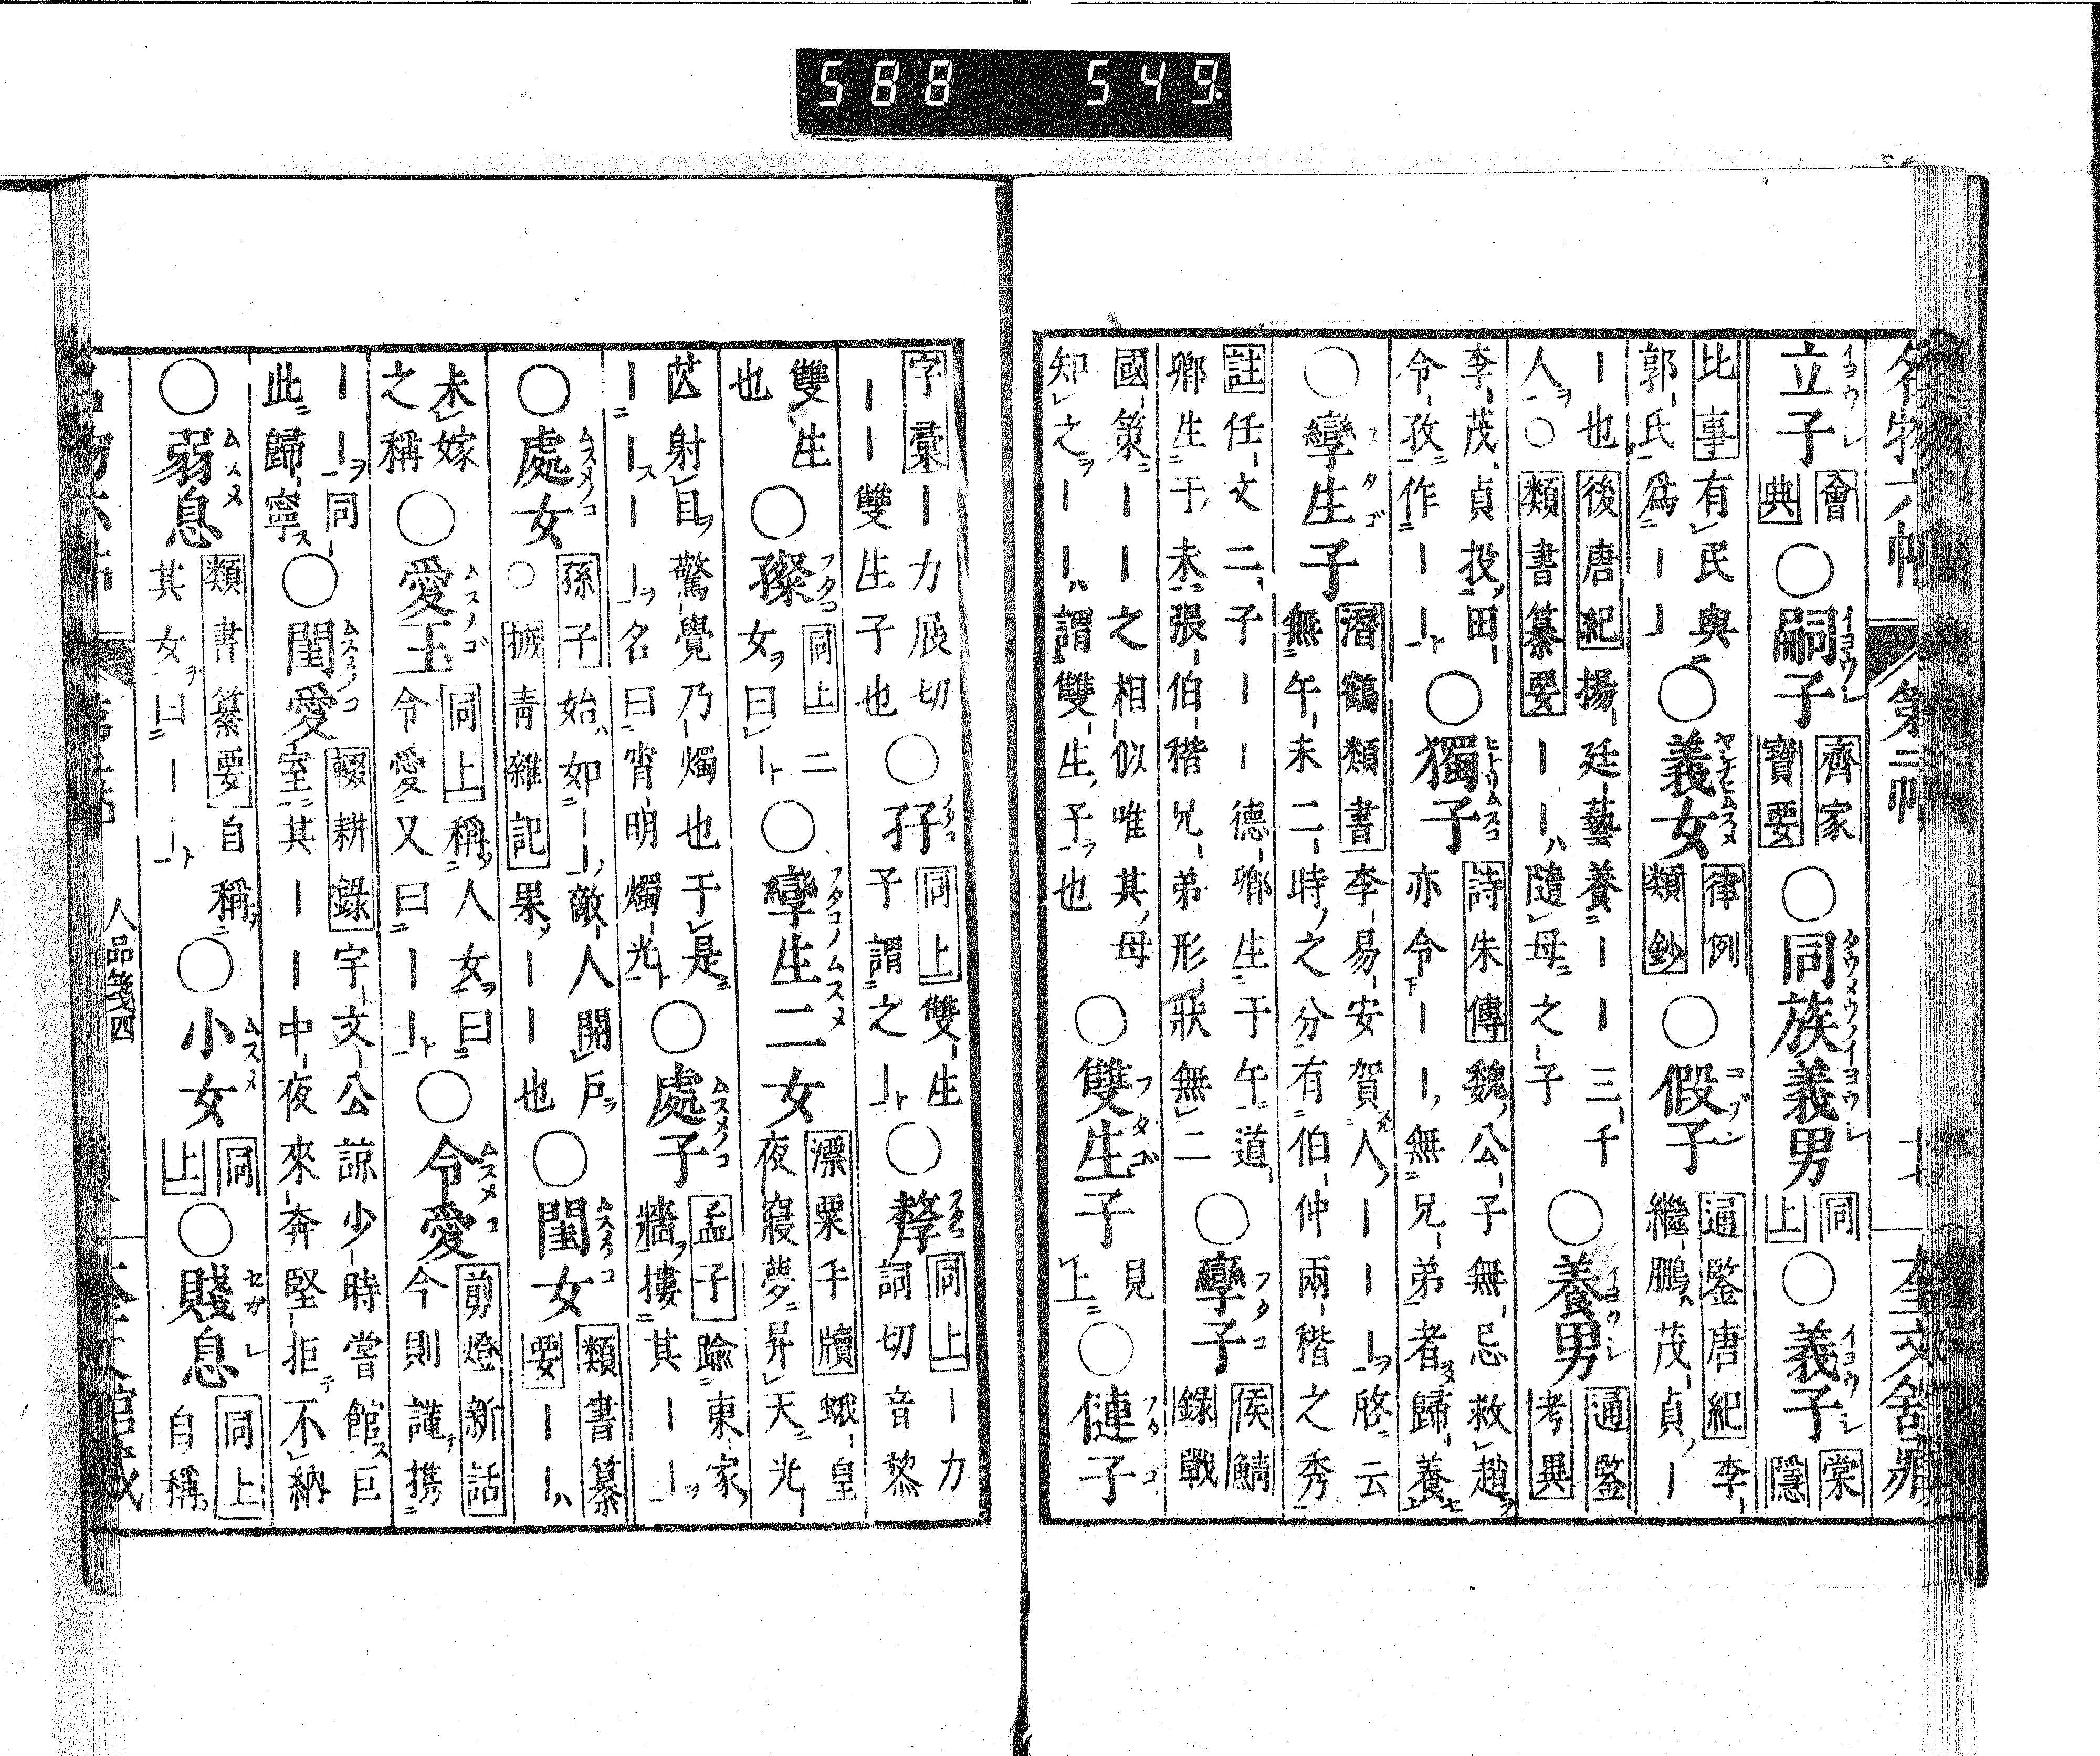 588 549
名物六帖 第二帖 十七 奎文舘藏
立子 會典 ○嗣子 齊家寶要 ○同族義男 同上 ○義子 棠隱
比事有民與郭氏爲ーー ○義女 律例類鈔 ○假子 通鑒唐紀李繼鵬茂貞ー
ー也後唐紀揚廷藝養ーー三千人○類書纂要ーーハ隨母之子 ○養男 通鑒考異
李茂貞投田令孜作ーー ○獨子 詩朱傳魏公子無忌救趙亦令ーー無兄弟者歸養
○孿生子 潛鶴類書李易安賀人ーーー啓云無午未二時之分有伯仲兩稭之秀
註任文二子ーー德卿生于午道卿生于未張伯稭兄弟形狀無二 ○孿子 侯鯖錄戰
國策ーー之相似唯其母知之ーーハ謂雙生子也 ○雙生子 見上 ○僆子
字彙ー力展切ーー雙生子也 ○孖 同上雙生子謂之ー ○孷 同上ー力詞切音黎
雙生也 ○ 同上二女曰ー ○孿生二女 漂粟手牘蛾皇夜寢夢昇天光
射目驚覺乃燭也于是ーーーー名曰宵明燭光 ○處子 孟子踰東家牆摟其ーー
○處女 孫子始如ーー敵人開戶○摭青雜記果ーー也 ○閨女 類書纂要ーーハ
未嫁之稱 ○愛玉 同上稱人女曰令愛又曰ーー ○令愛 剪燈新話今則謹携
ーー同此歸寧 ○閨愛 輟耕錄宇文公諒少時嘗館巨室其ーー中夜來奔堅拒不納
○弱息 類書纂要自稱其女曰ーー ○小女 同上 ○賤息 同上自稱
人品箋四